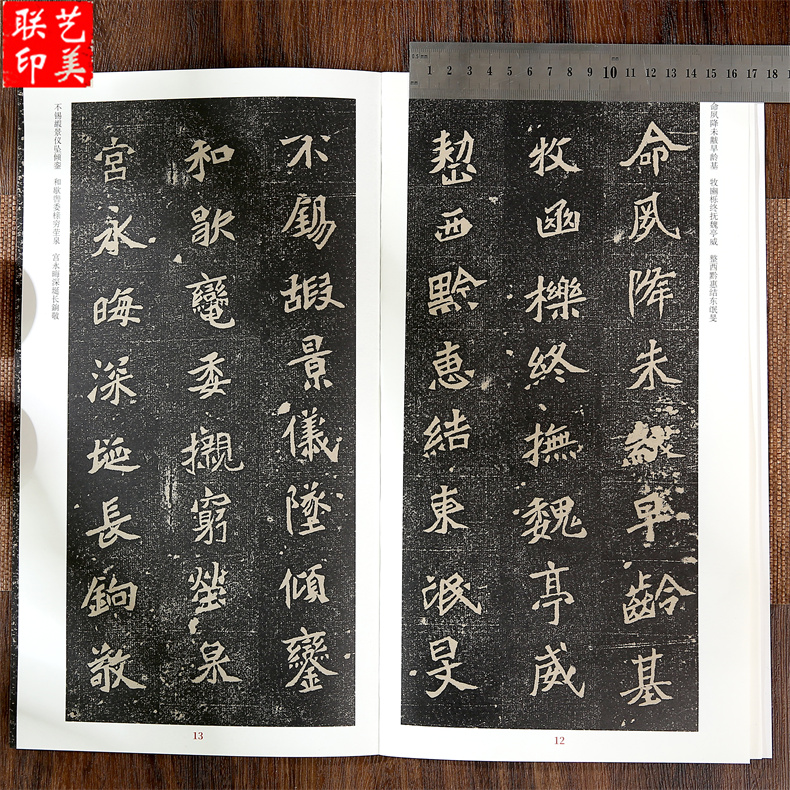 艺美
联印
0.5mm
1 2 3 4 5 6 7 8 9 10 11 12 13 14 15 16 17 18
命夙降未黻早龄基 牧豳栎终抚魏亭威 整西黔惠结东氓旻
命夙降未早齡基
牧豳櫟終撫魏亭威
西黔恵結東泯旻
12
不錫嘏景儀墜傾鑾
和歇委櫬窮塋泉
宮永晦深埏長敬
不锡嘏景仪坠倾銮 和歇委榇穷茔泉 宫永晦深埏长敬
13